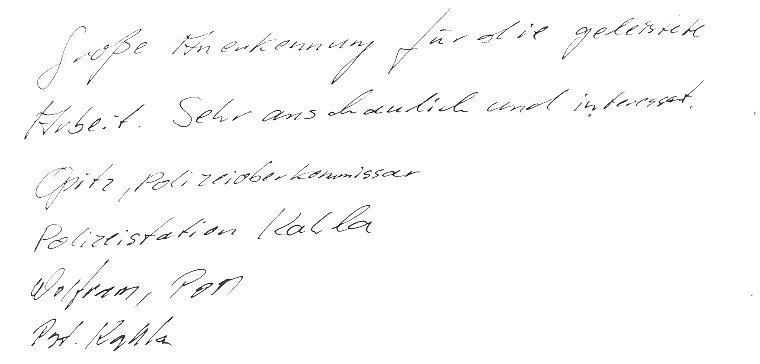 Große Anerkennung für die geleistete
Arbeit. Sehr anschaulich und interessant.
Opitz, Polizeioberkommissar
Polizeistation Kahla
Wolfram, POM
Pst. Kahla